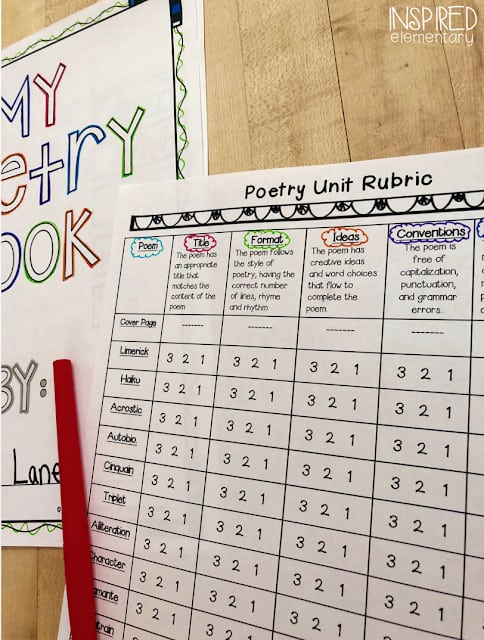 INSPIRED
elementary
MY
etry
OOK
BY:
Lane
Poetry Unit Rubric
Poem
Title
The poem has
an appropriate
title that
matches the
content of the
poem.
Format
The poem follows
the style of
poetry, having the
correct number
of lines, rhyme
and rhythm.
Ideas
The poem has
creative ideas
and word choices
that flow to
complete the
poem.
Conventions
The poem is
free of
capitalization,
punctuation,
and grammar
errors.
Cover Page ------- ------- ------- -------
Limerick 3 2 1 3 2 1 3 2 1 3 2 1
Haiku 3 2 1 3 2 1 3 2 1 3 2 1
Acrostic 3 2 1 3 2 1 3 2 1 3 2 1
Autobio. 3 2 1 3 2 1 3 2 1 3 2 1
Cinquain 3 2 1 3 2 1 3 2 1 3 2 1
Triplet 3 2 1 3 2 1 3 2 1 3 2 1
Alliteration 3 2 1 3 2 1 3 2 1 3 2 1
Character 3 2 1 3 2 1 3 2 1 3 2 1
amante 3 2 1 3 2 1 3 2 1
train 3 2 1